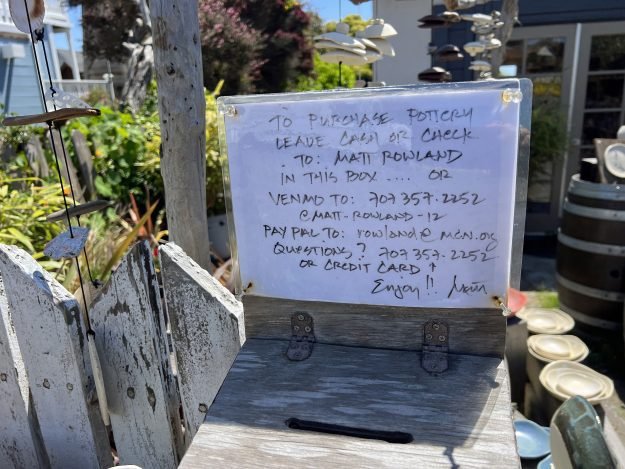 TO PURCHASE POTTERY
LEAVE CASH OR CHECK
. TO: MATT ROWLAND
IN THIS BOX .... OR
VENMO TO: 707 357.2252
@MATT-ROWLAND-12
PAYPAL TO: rowland@mcn.org
QUESTIONS? 707 357-2252
OR CREDIT CARD ↑
Enjoy!!